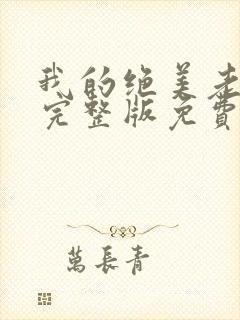 我的绝美老
完整版免费
萬長青